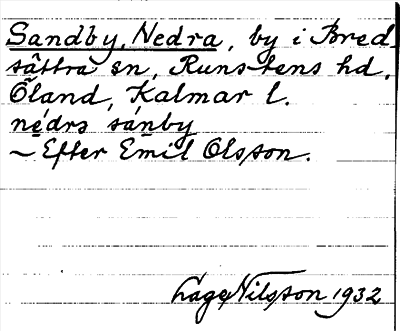 Sandby, Nedra, by i Bred-
sättra sn, Runstens hd,
Öland, Kalmar l.
nédrs sánby
~ Efter Emil Olsson.
Lage Nilsson 1932